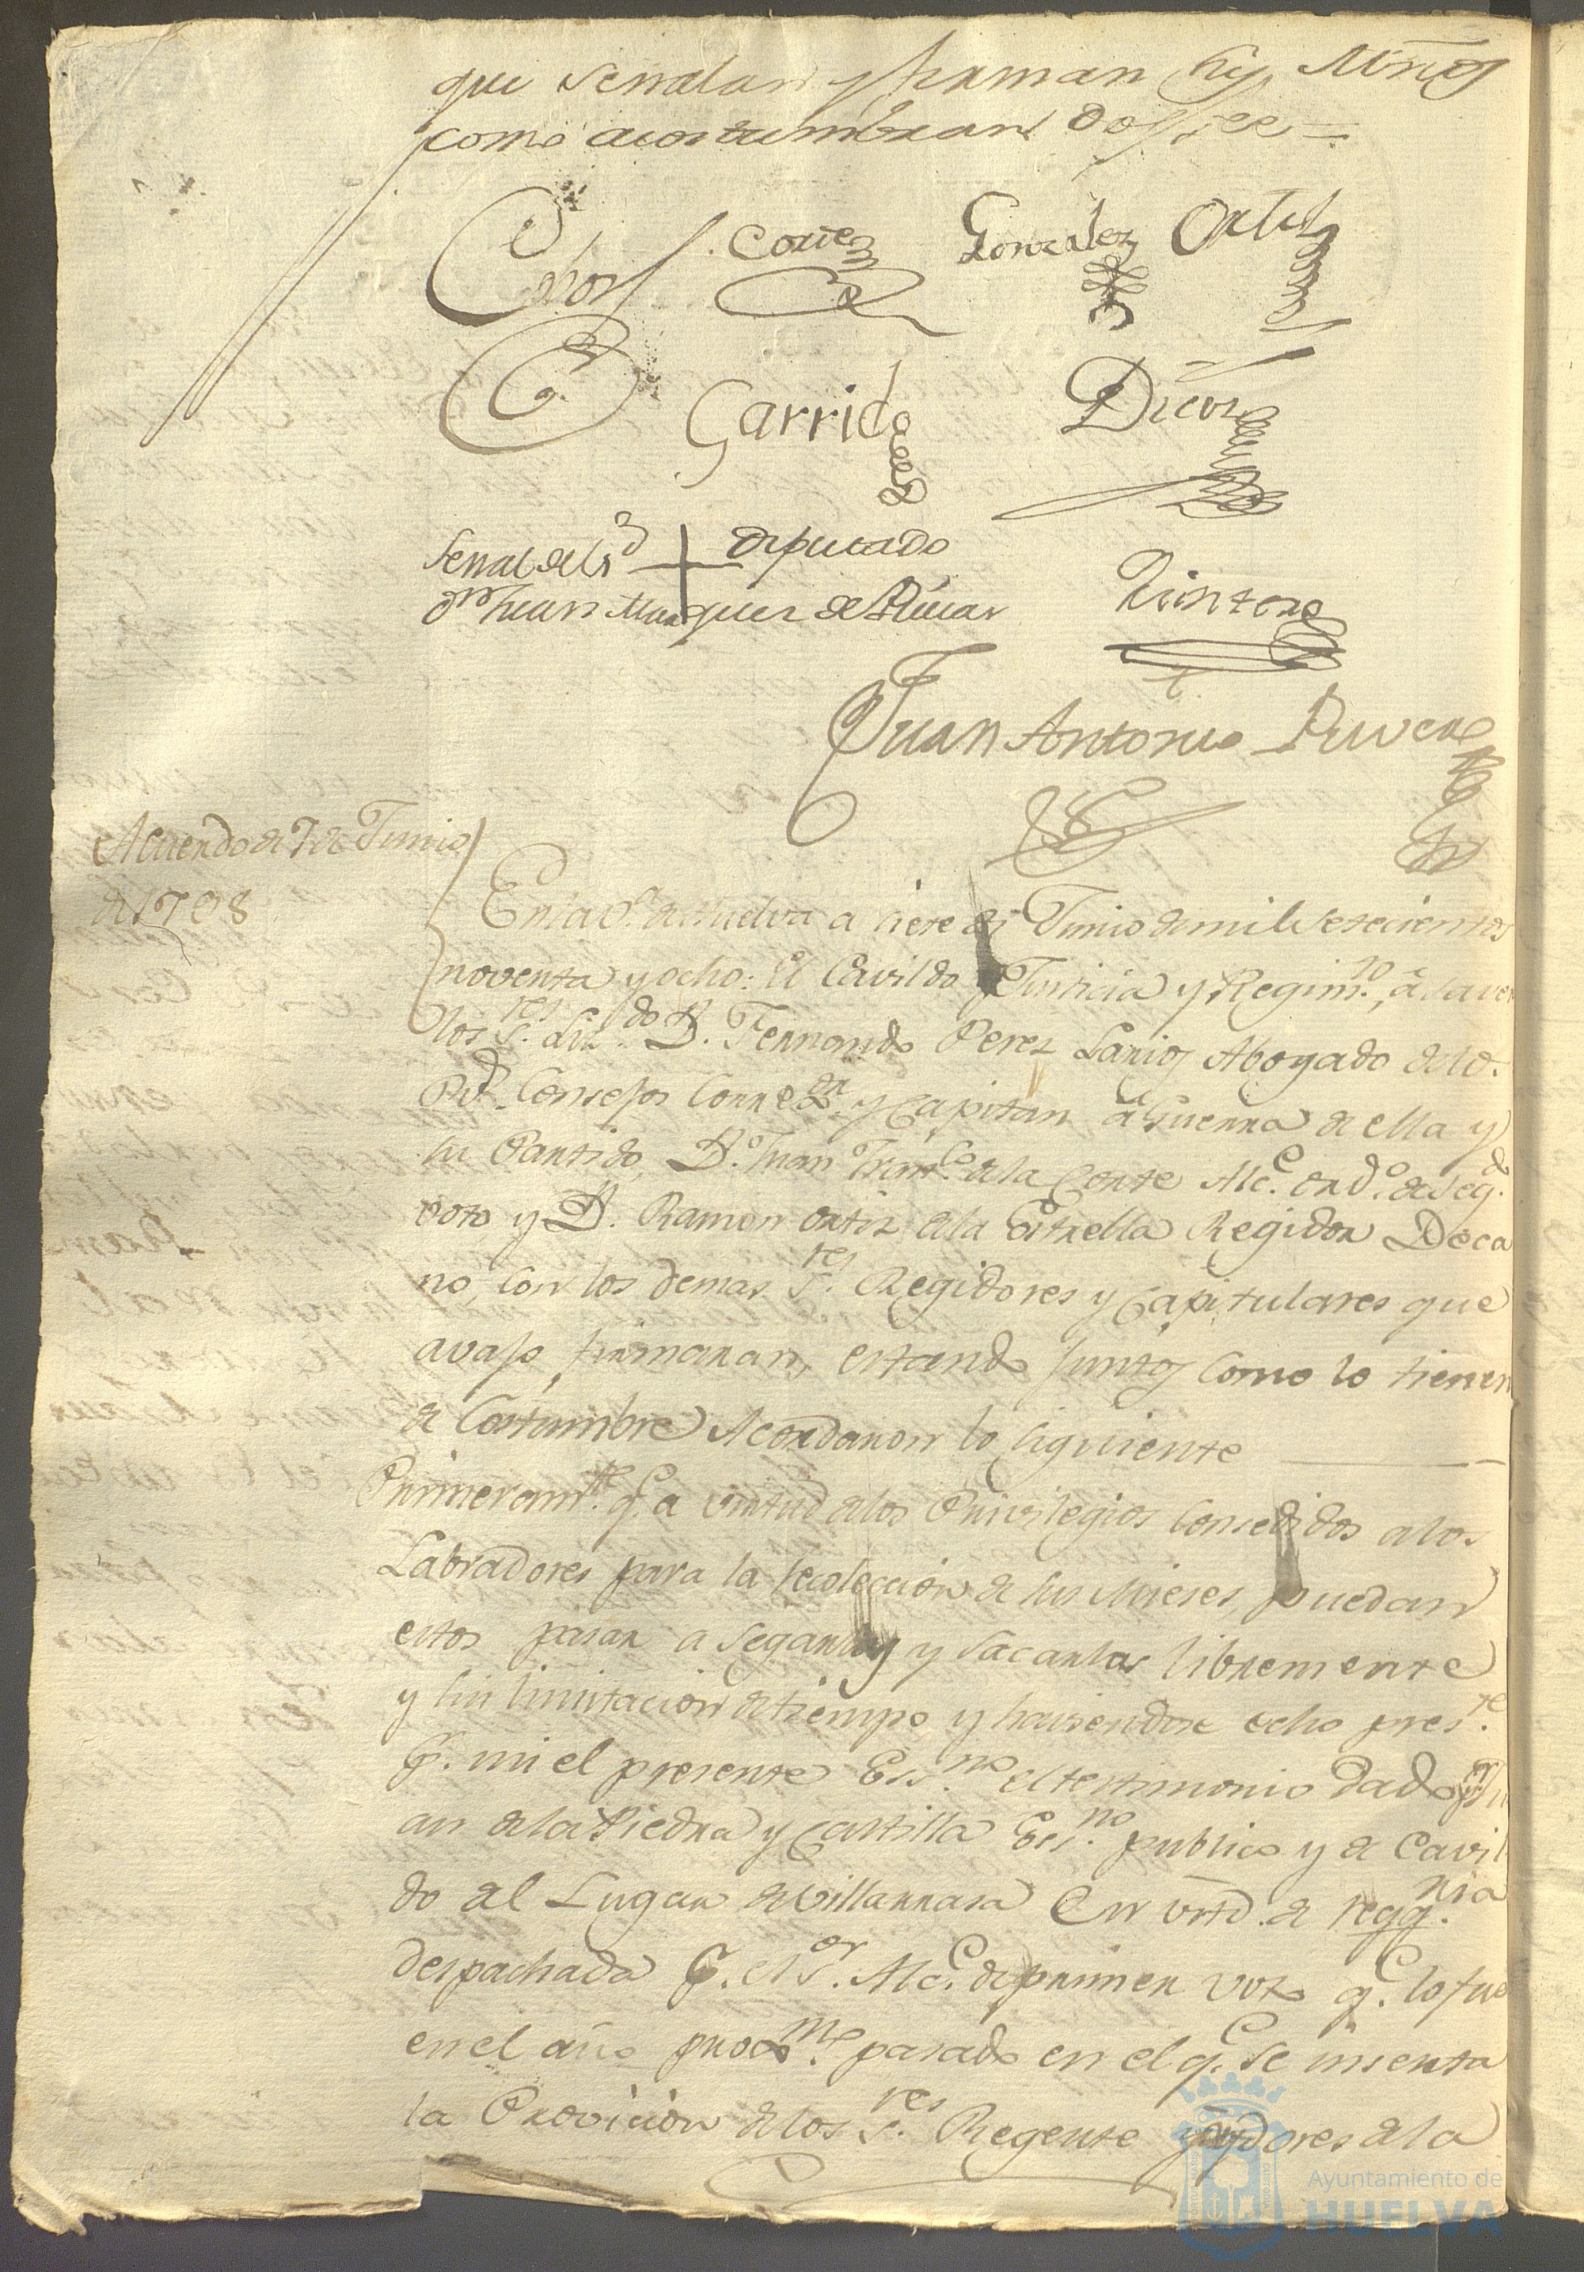 que señalan y firman sus Mrds
como acostumbran doy fee =
Cortes
Gonzalez
Ortiz
Garrido
Señal del Sr
+ diputado
Dn Juan Marquez de
Quintero
Juan Antonio Rivera
Acuerdo de 7 de Junio
de 1798
En la Va. de Huelva a siete de Junio de mil setecientos
noventa y ocho: El Cavildo Justicia y Regimto. á saver
los Sres. Licdo. Dn. Fernando Perez Larios Abogado de los
Rs. Consejos Corregor. y Capitan á Guerra de ella y
su Partido, Dn. Juan Franco. de la Corte Alce. ordo. de segdo.
voto, y Dn. Ramon Ortiz de la Estrella Regidor Deca
no, con los demas Sres. Regidores y Capitulares que
avajo firmaran, estando juntos como lo tienen
de Costumbre Acordaron lo siguiente
Primeramte. qe. a virtud de los Privilegios consedidos a los
Labradores para la recoleccion de sus Mieses, puedan
estos pasar a segarlas y sacarlas libremente
y sin limitacion de tiempo y haviendose echo preste.
pr. mi el presente Essno. el testimonio dado pr. Ju
an de la Piedra y Castilla Essno. publico y de Cavil
do del Lugar de Villarrasa En virtd. de reqqria.
despachada pr. el Sor. Alce. de primer voto qe. lo fue
en el año proxme. pasado en el qe. se inserta
la Provicion de los Sres. Regente y oydores de la
Ayuntamiento de
HUELVA